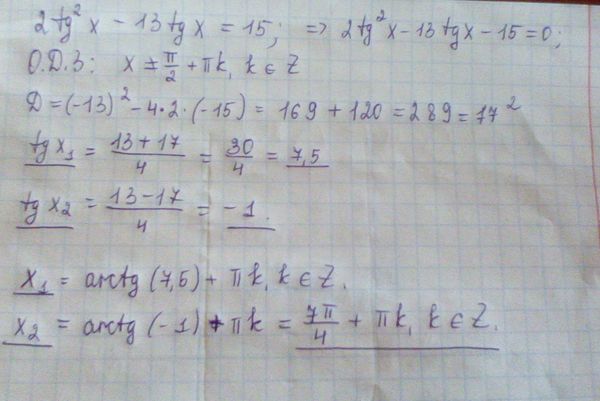 2tg²x - 13tgx = 15; => 2tg²x - 13tgx - 15 = 0;
О.Д.З: x ≠ π/2 + πk, k ∈ Z
D = (-13)² - 4·2·(-15) = 169 + 120 = 289 = 17²
tg x₁ = (13+17)/4 = 30/4 = 7,5
tg x₂ = (13-17)/4 = -1.
x₁ = arctg(7,5) + πk, k ∈ Z.
x₂ = arctg(-1) + πk = 7π/4 + πk, k ∈ Z.